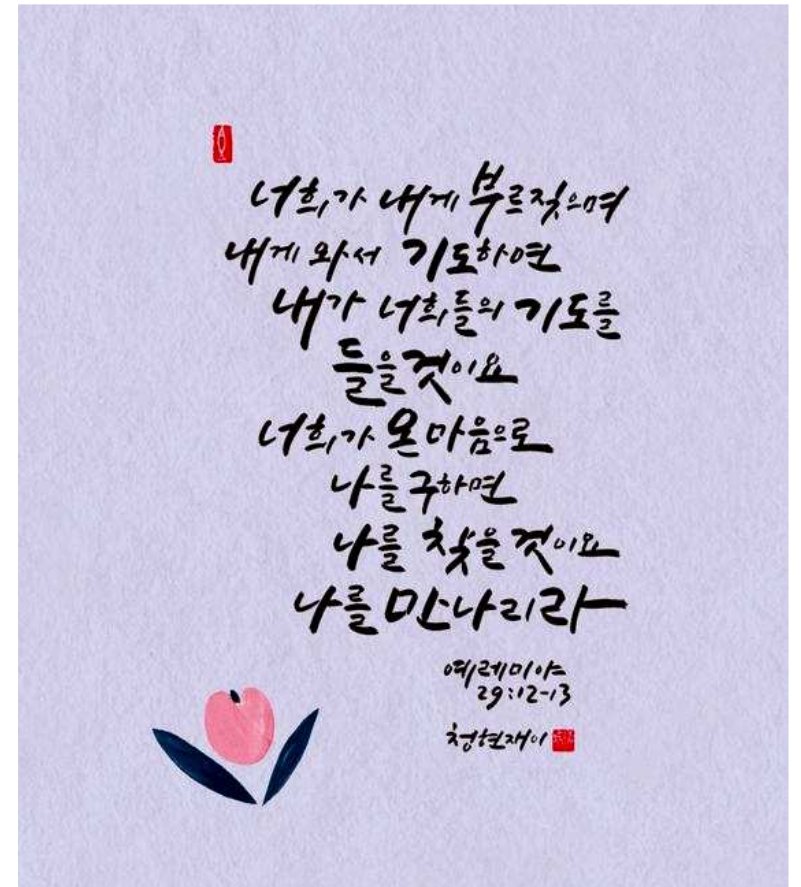 너희가 내게 부르짖으며
내게 와서 기도하면
내가 너희들의 기도를
들을것이요
너희가 온 마음으로
나를 구하면
나를 찾을 것이요
나를 만나리라
예레미야
29:12-13
청현재이